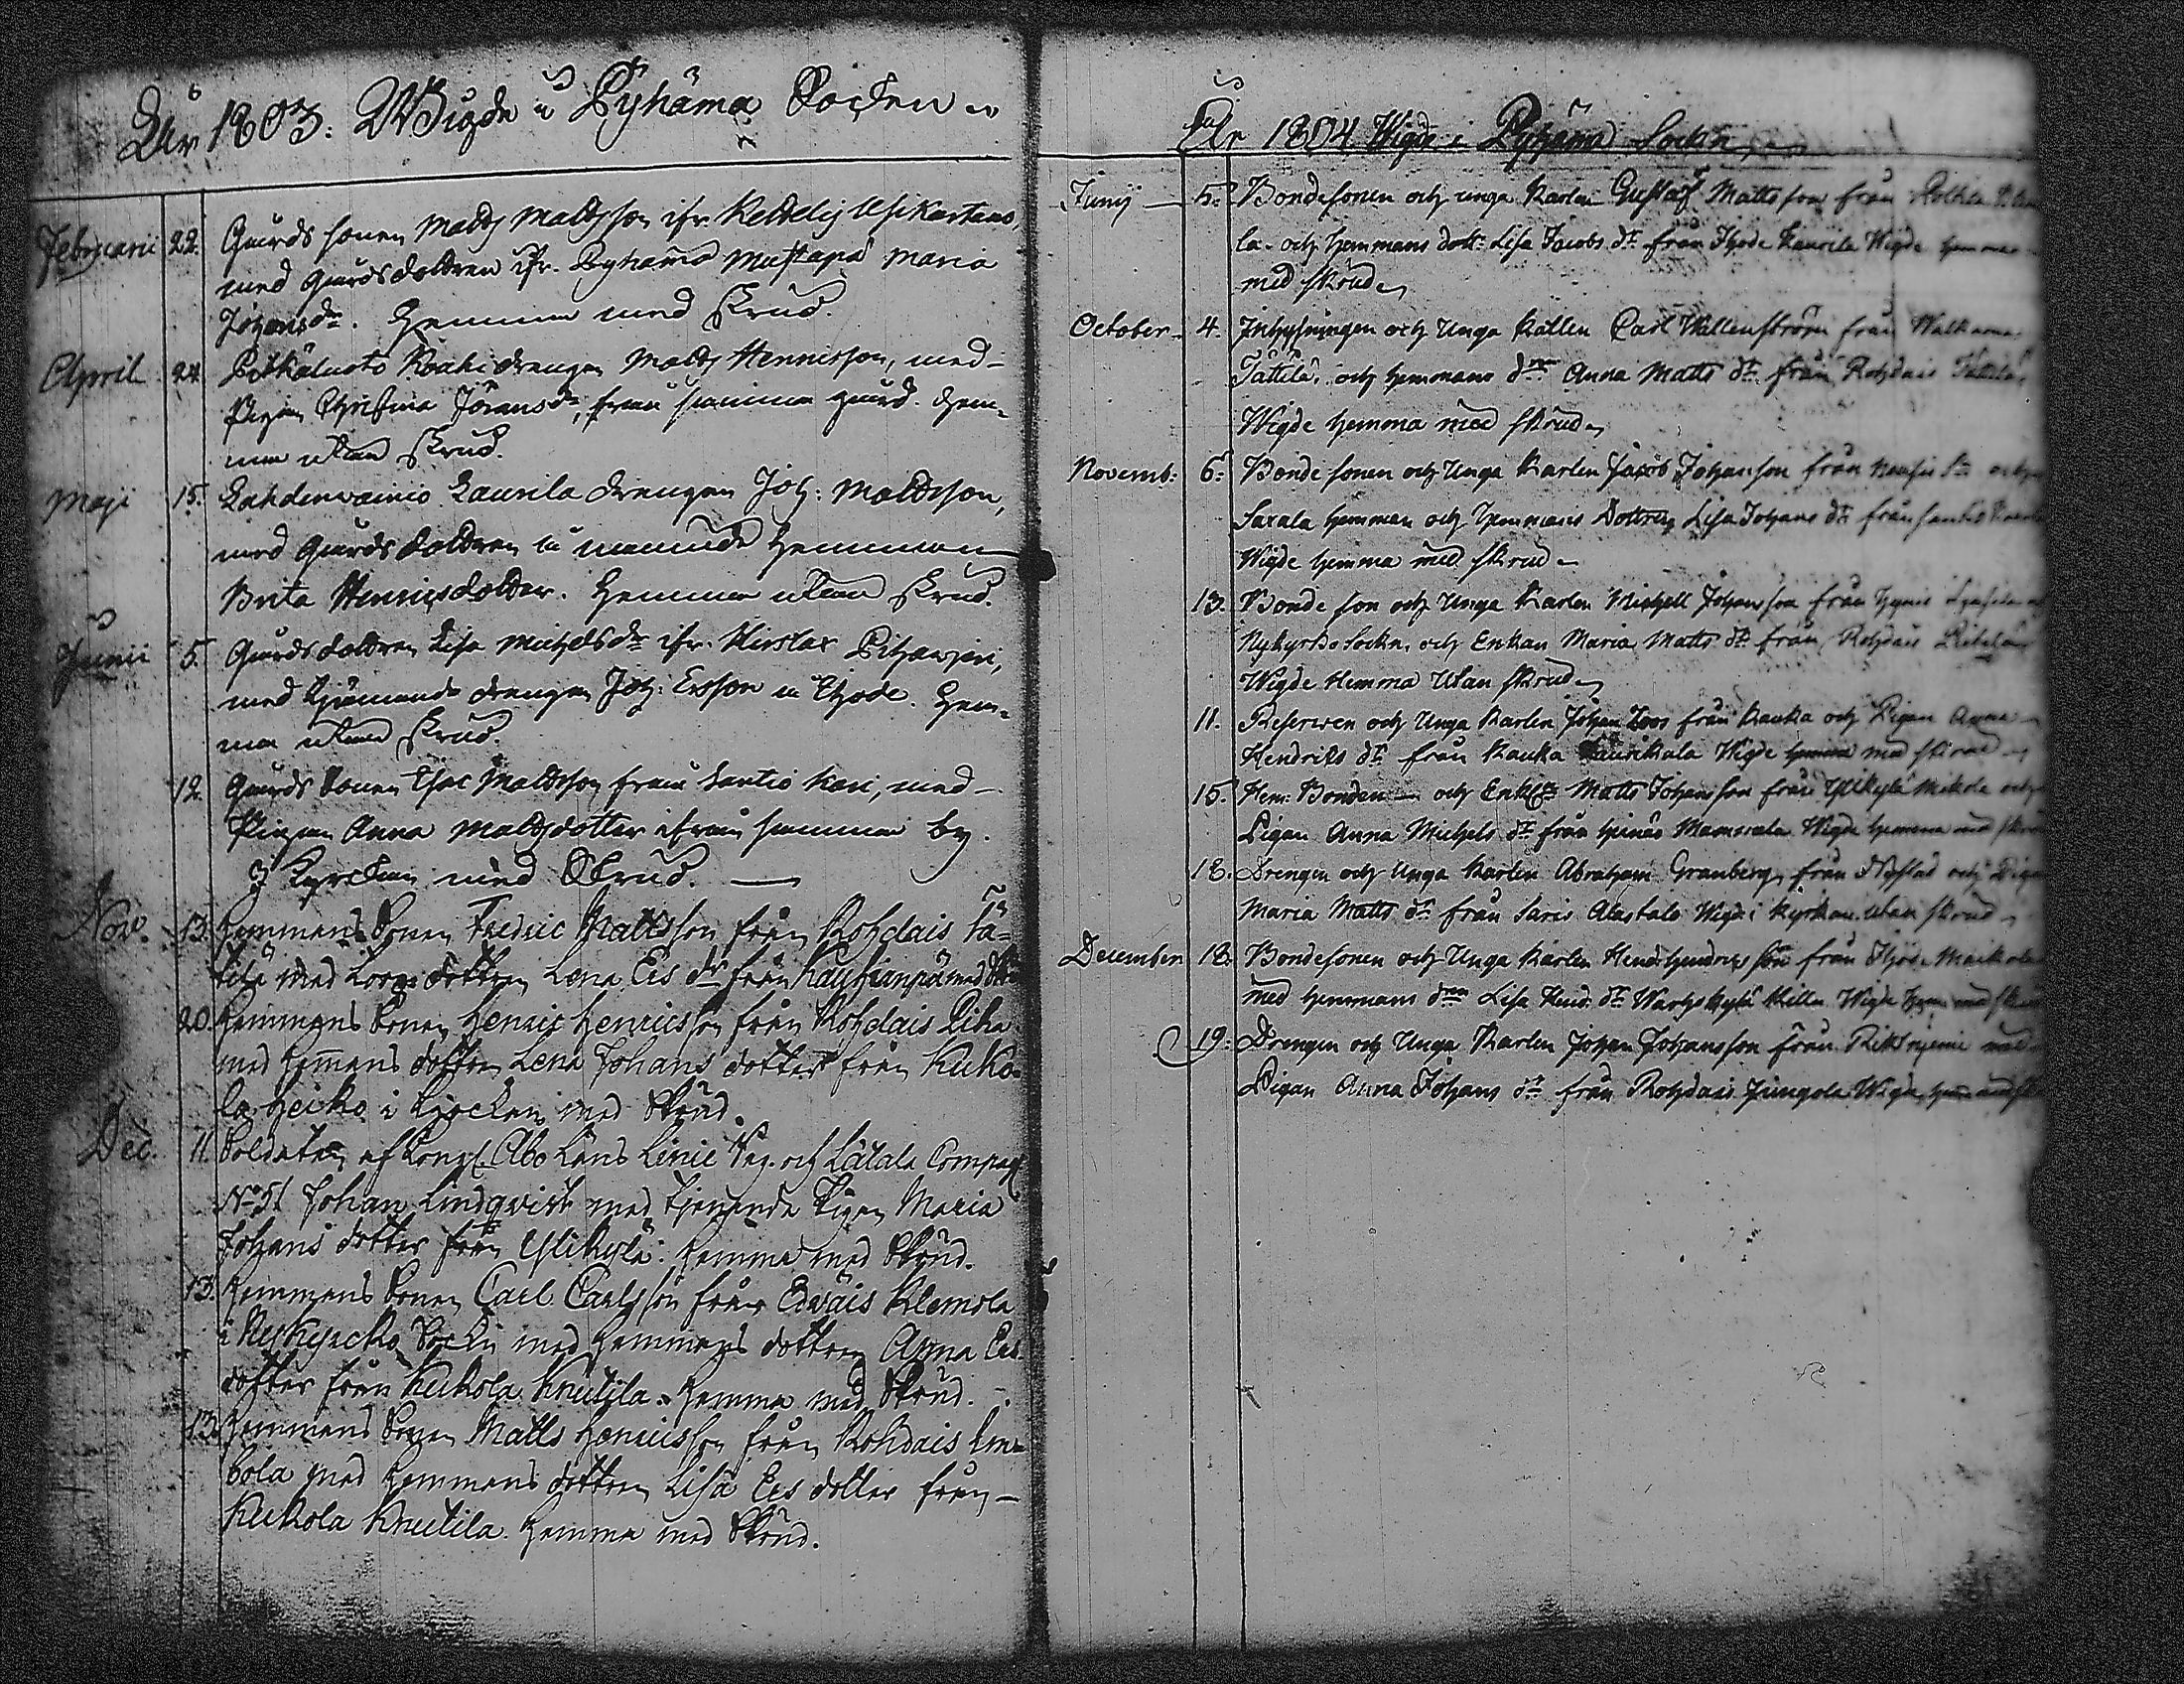 År 1803. Wigde i Pyhäma Socken
Februarii 22. Gårds sonen Matts Mattsson ifr. Kettelij Usikartano,
med Gårdsdottren ifr. Pyhäma Mustapä Maria
Johansdr. Hemma med skrud.
April 24. Pitkäluoto drengen Matts Henricsson, med
Pigan Christina Jöransdr, från samma gård. Hem-
ma utan skrud.
Maji 15. Lahdenwainio Laurila drengen Joh: Mattsson,
med Gårdsdottren i namnde Hemman
Brita Henricsdotter. Hemma utan skrud.
Junii 5. Gårdsdottren Lisa Michelsdr ifr. Hirslax
med tjenande drengen Joh: Ersson i Ihode. Hem-
ma utan skrud.
12. Gårds Sonen Isac Mattsson från Santio Kari, med
Pigan Anna Mattsdotter ifrån samma by.
I Kyrckan med Skrud.
Nov. 13. Hemmans Sonen Fredric Mattsson från Rohdais Tä-
tilä med dottren Lena Ers dr från med
20. Hemmans Sonen Henric Henricsson från Rohdais Pika
med Hemmans dottren Lena Johans dotter från Kuko-
la Heiko i kjrckan med Skrud.
Dec. 11. Soldaten af Kongl. Åbo Läns Linie Reg. och Lätala Compag
No 51 Johan Lindqvist med tjenande Pigan Maria
Johans dotter från Ylikylä. Hemma med Skrud.
13. Hemmans Sonen Carl Carlsson från Edväis Klemola
i Nykyrcko Sockn med Hemmans dottren Anna Ers
dotter från Kukola Knutila. Hemma med Skrud.
13. Hemmans Sonen Matts Henricsson från Rohdais
bola med Hemmans dottren Lisa Ers dotter från
Kukola Knutila. Hemma med Skrud.
År 1804 Wigde i Pyhäma Sockn
Junij 5. Bondesonen och unga Karlen Gustaf Mattsson från
la och hemmans dottr Lisa Jacobs dr från Ihode Laurila Wigde hemma
med skrud
October 4. Inhysningen och Unga Karlen Carl Wallenström från
Tättilä och hemmans dren Anna Matts dr från Rohdais Tättilä
Wigde hemma med skrud
Novemb: 6. Bonde sonen och Unga Karlen Jacob Johansson från
Saxala hemman och hemmans Dottren Lisa Johans dr från Santio
Wigde hemma med skrud
13. Bonde son och Unga Karlen Michell Johansson från
Nykyrko Sockn, och Enkan Maria Matts dr från Rohdais
Wigde Hemma Utan skrud
11. och Unga Karlen Johan från Kauka och Pigan Anna
Hendriks dr från Kauka Wigde hemma med skrud
15. Hem. Bonden och Enkl. Matts Johansson från Ylikylä Mikola och
Pigan Anna Michels dr från Wigde hemma med skrud
18. Drengen och Unga Karlen Abraham Granberg från Nystad och Pigan
Maria Matts dr från Saris Alastalo Wigde i Kyrkan utan skrud
December 18. Bondesonen och Unga Karlen Hend: Hendricsson från
med hemmans dren Lisa Hend. dr Wigde hem. med
19. Drengen och Unga Karlen Johan Johansson från med
Pigan Anna Johans dr från Rohdais Wigde hem. med